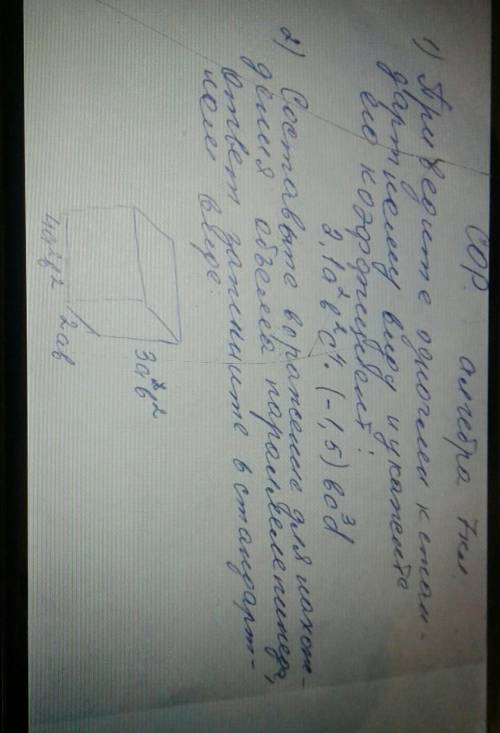 СОР. алгебра 7кл.
1) Приведите одночлен к стан-
дартному виду и укажите
его коэффициент:
2,1a²b²c⁴·(-1,5)bc³d
2) Составьте выражение для нахож-
дения объёма параллелепипеда,
ответ запишите в стандарт-
ном виде:
3a³b²
2ab
4a²b²